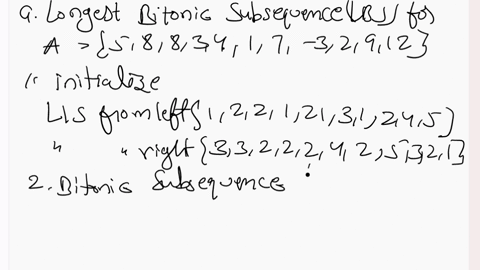 a. Longest Bitonic Subsequence (LBS) for
A = {5, 8, 8, 3, 4, 1, 7, -3, 2, 9, 12}
1. initialize
LIS from left { 1, 2, 2, 1, 2, 1, 3, 1, 2, 4, 5 }
" " right { 3, 3, 2, 2, 2, 4, 2, 5, 3, 2, 1 }
2. Bitonic Subsequences